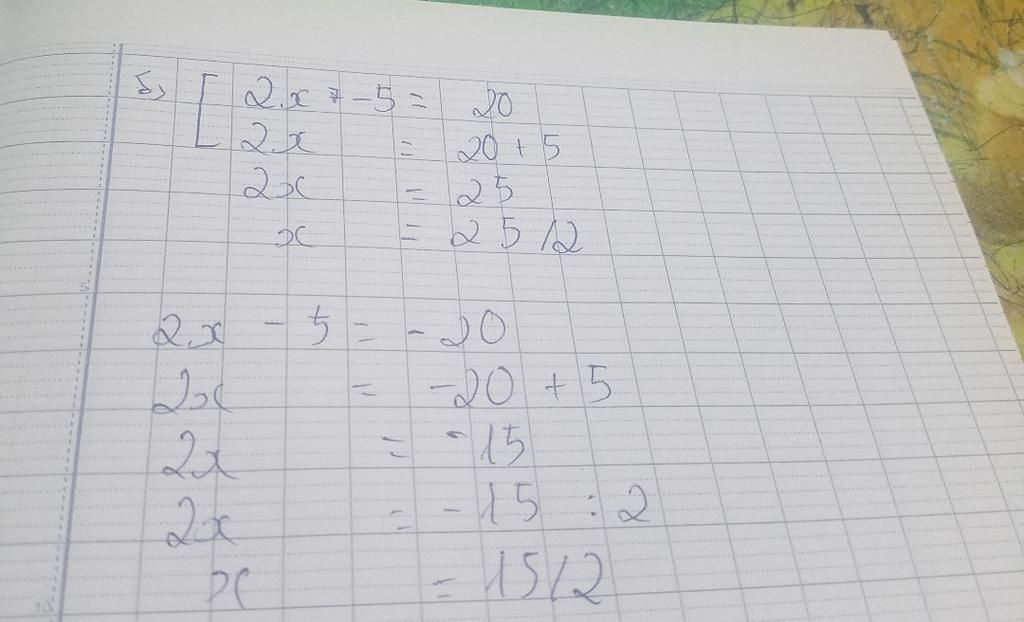 5) [ 2x - 5 = 20
2x = 20 + 5
2x = 25
x = 25/2
5
2x - 5 = -20
2x = -20 + 5
2x = -15
2x = -15 : 2
10
x = 15/2